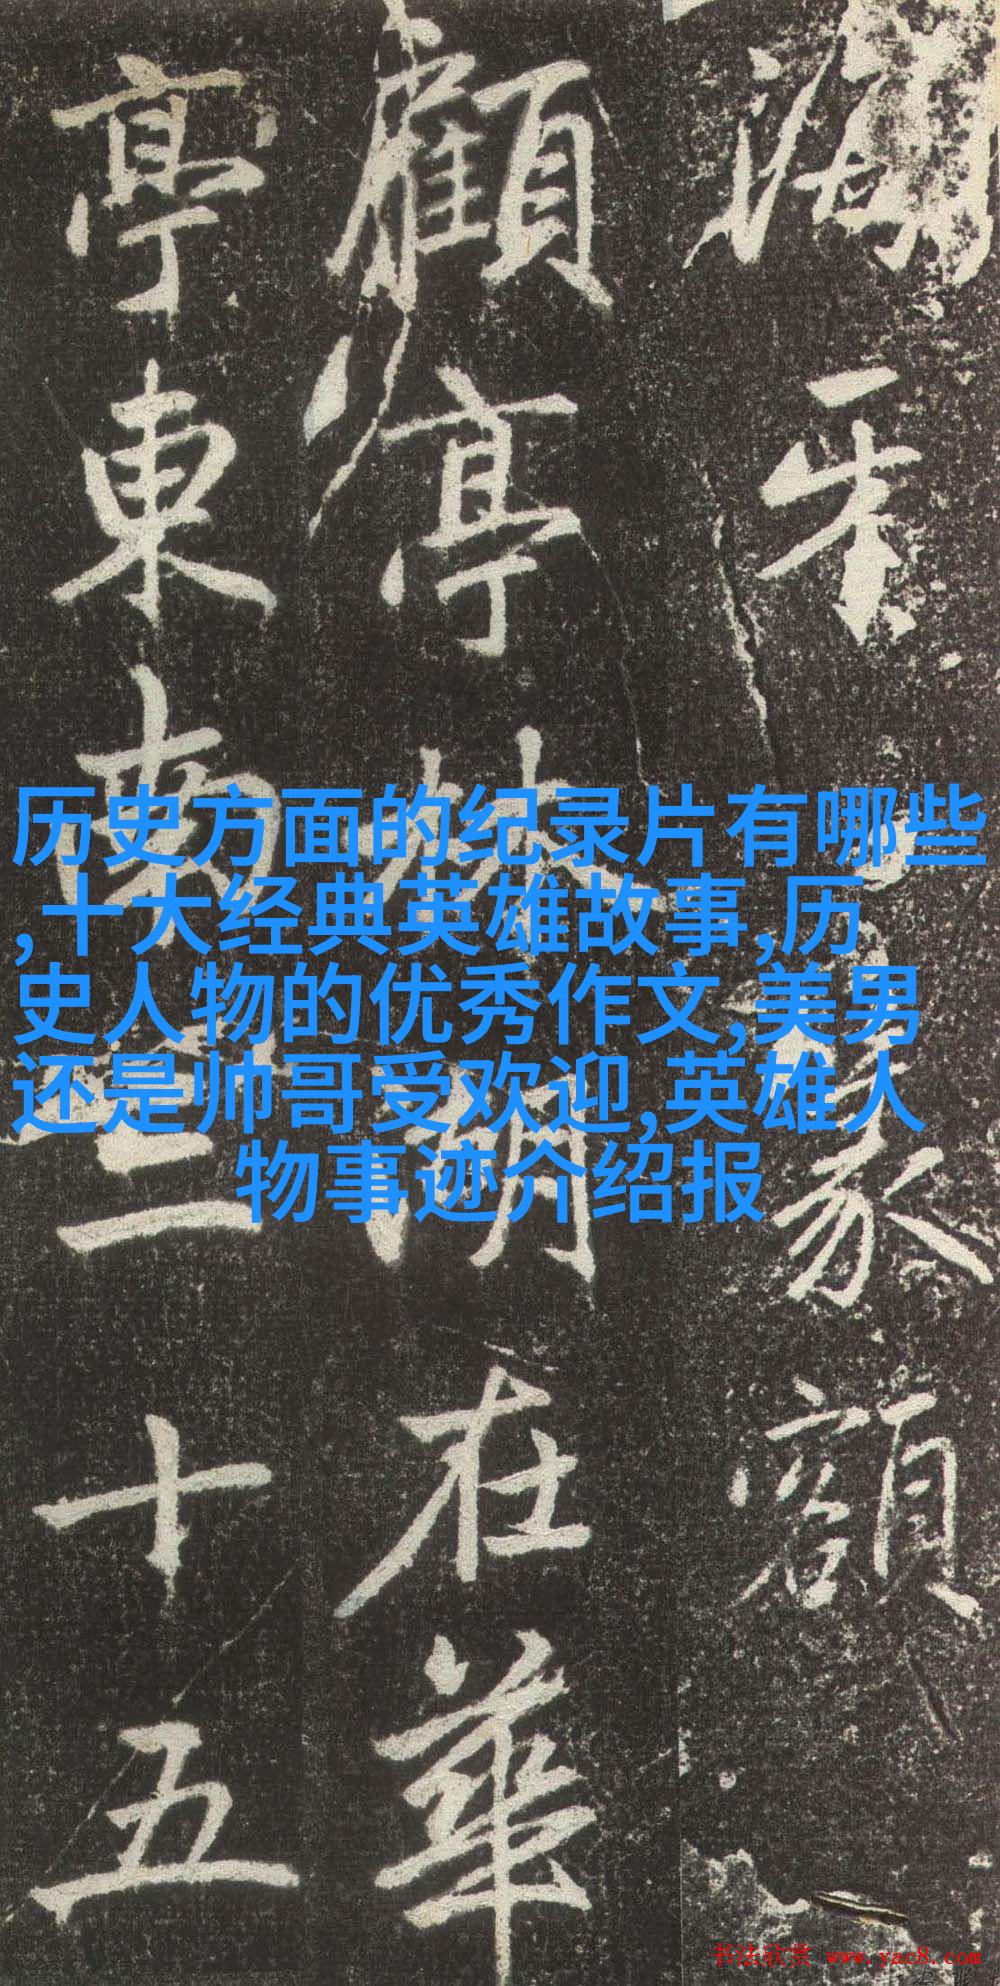 額
顧亭林湖在華
亭東南三十五
历史方面的纪录片有哪些
,十大经典英雄故事,历
史人物的优秀作文,美男
还是帅哥受欢迎,英雄人
物事迹介绍报
书法欣赏 www.yac8.com